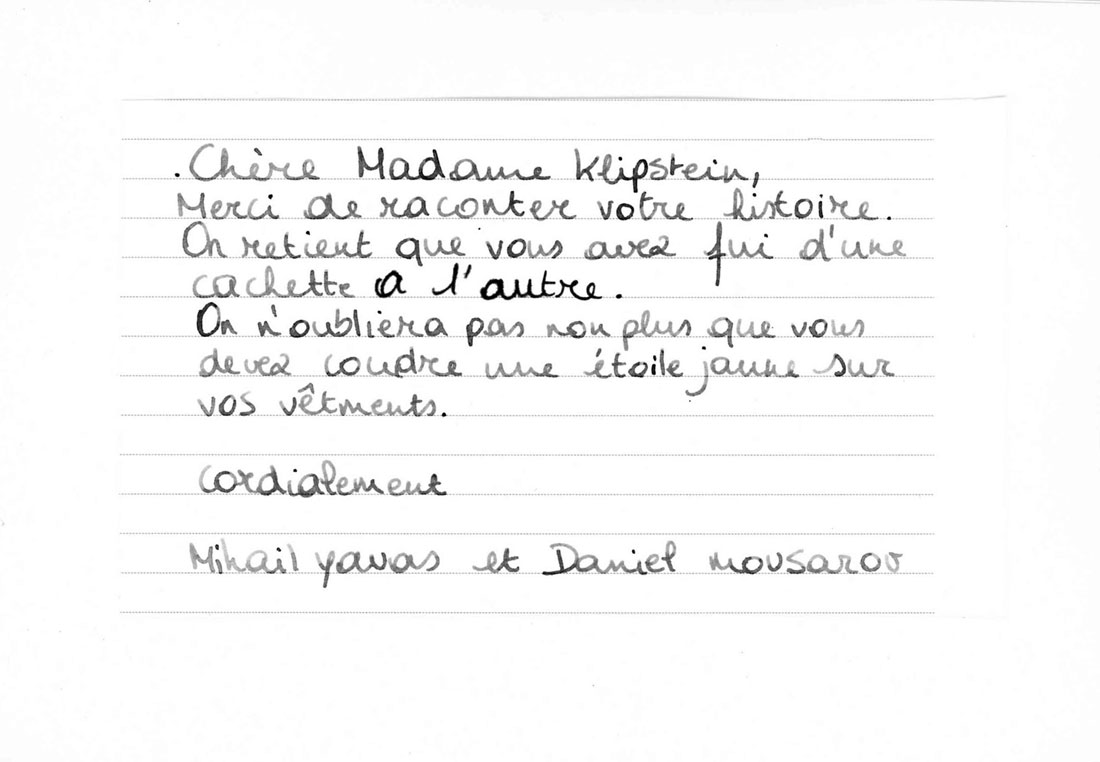 .Chère Madame Klipstein,
Merci de raconter votre histoire.
On retient que vous avez fui d'une
cachette a l'autre.
On n'oubliera pas non plus que vous
devez coudre une étoile jaune sur
vos vêtments.
Cordialement
Mihail yavas et Daniel mousarov